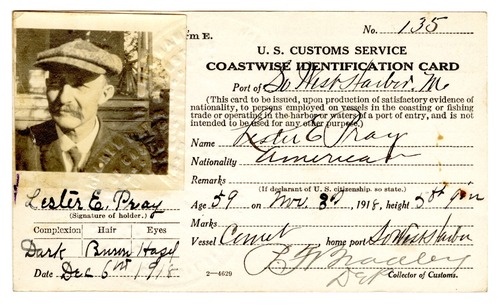 rm E.
No. 135
U. S. CUSTOMS SERVICE
COASTWISE IDENTIFICATION CARD
Port of So West Harbor, Me
(This card to be issued, upon production of satisfactory evidence of
nationality, to persons employed on vessels in the coasting or fishing
trade or operating in the harbor or waters of a port of entry, and is not
intended to be used for any other purpose.)
Name Lester E Pray
Nationality American
Remarks
(If declarant of U. S. citizenship, so state.)
Age 59 on Nov 30, 1918, height 5 ft
Marks
Vessel Comet home port So West Harbor
Collector of Customs.
2—4629
Lester E. Pray
(Signature of holder.)
Complexion Hair Eyes
Dark Brown Hazel
Date Dec 6th 1918